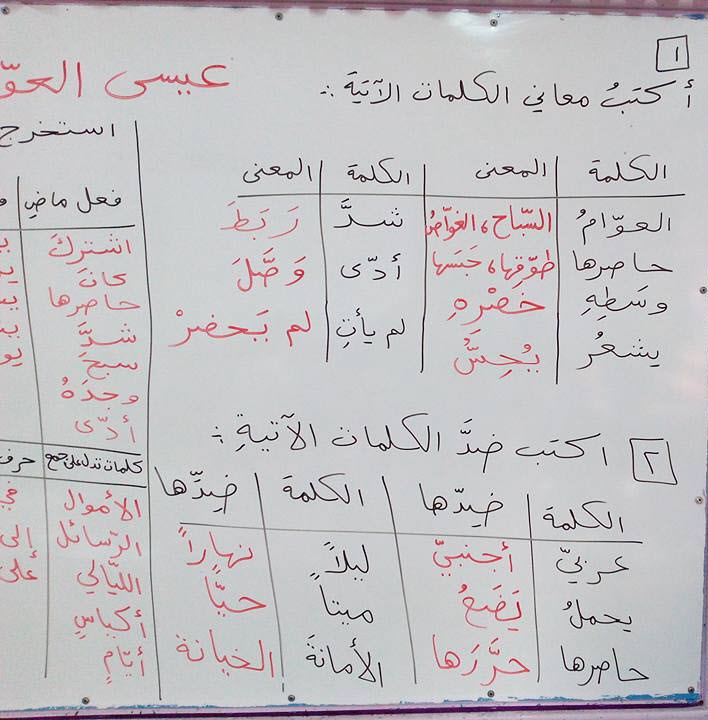 عيسى العوّ
١
أكتبُ معاني الكلمات الآتيةَ :
الكلمة المعنى الكلمة المعنى
العوّامُ السّباح، الغوّاصُ شدَّ رَبَطَ
حاصرها طوّقها، حَبَسها أدّى وَصَّلَ
وسَطِهِ خَصْرهِ لم يأتِ لم يَحضرْ
يشعُر يُحِسُّ
٢
اكتب ضدَّ الكلمات الآتيةِ :
الكلمة ضِدّها الكلمة ضِدّها
عربيّ أجنبيّ ليلاً نهاراً
يحملُ يَضَعُ ميتا حيّا
حاصرها حرَّرَها الأمانةَ الخيانة
استخرج
فعل ماضٍ
اشتركَ
كانَ
حاصرها
شدَّ
سبحَ
وجدَهُ
أدّى
كلمات تدل على جمع حرف
الأموال في
الرّسائل إلى
اللّيالي على
أكياسٍ
أيّامٍ